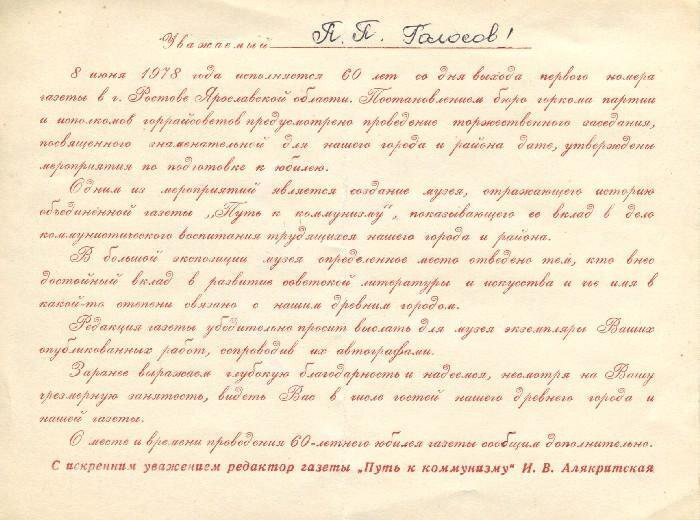 Уважаемый П. П. Голосов!
8 июня 1978 года исполняется 60 лет со дня выхода первого номера
газеты в г. Ростове Ярославской области. Постановлением бюро горкома партии
и исполкомов горрайсоветов предусмотрено проведение торжественного заседания,
посвященного знаменательной для нашего города и района дате, утверждены
мероприятия по подготовке к юбилею.
Одним из мероприятий является создание музея, отражающего историю
объединенной газеты „Путь к коммунизму“, показывающего ее вклад в дело
коммунистического воспитания трудящихся нашего города и района.
В большой экспозиции музея определенное место отведено тем, кто внес
достойный вклад в развитие советской литературы и искусства и чье имя в
какой-то степени связано с нашим древним городом.
Редакция газеты убедительно просит выслать для музея экземпляры Ваших
опубликованных работ, сопроводив их автографами.
Заранее выражаем глубокую благодарность и надеемся, несмотря на Вашу
чрезмерную занятость, видеть Вас в числе гостей нашего древнего города и
нашей газеты.
О месте и времени проведения 60-летнего юбилея газеты сообщим дополнительно.
С искренним уважением редактор газеты „Путь к коммунизму“ И. В. Алякритская